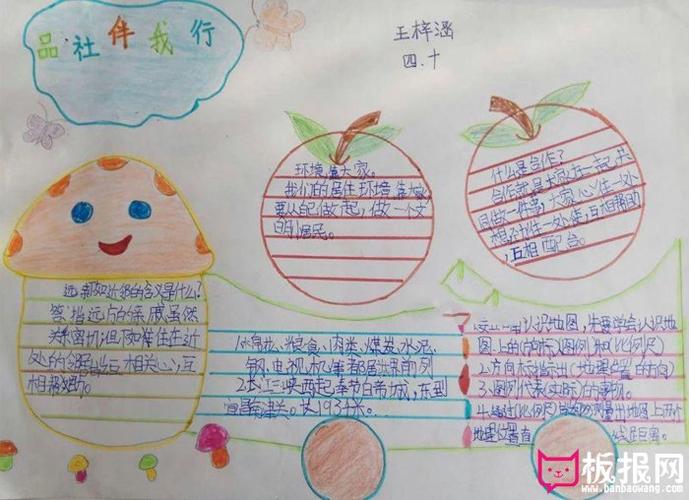 品社伴我行
王梓涵
四.十
环境靠大家。
我们的居住环境靠大家
要从起做起,做一个文
的居民。
什么是合作?
合作就是大家在一起,共
同做一件事,大家心往一处
想,互相帮助
,互相配合。
远亲不如近邻的含义是什么?
答:指远方的亲戚虽然
关系密切,但不如住在近
处的邻居
相关心,互
相帮助。
粮食、肉类、煤炭、水泥
钢、电视机
2.长江三峡西起奉节白帝城,东到
宜昌南津关。长193千米。
认识地图,先要学会认识地
图上的(方向标)(图例)和(比例尺)
2.方向标指示出(地理位置的方向)
3.图例代表(实际)的事物。
4.通过(比例尺)
出地图上两个
地理位置
板报网
www.banbaowang.com